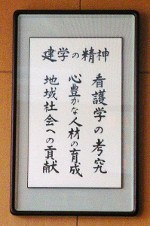 建学の精神
看護学の考究
心豊かな人材の育成
地域社会への貢献